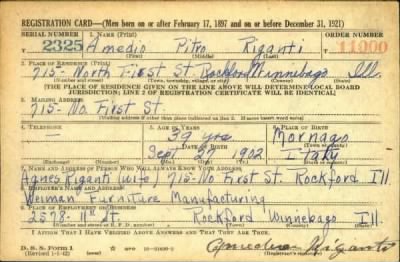 REGISTRATION CARD—(Men born on or after February 17, 1897 and on or before December 31, 1921)
SERIAL NUMBER 1. NAME (Print) ORDER NUMBER
2325 Amedio Pitro Riganti 11000
(First) (Middle) (Last)
2. PLACE OF RESIDENCE (Print)
715- North First St. Rockford Winnebago Ill.
(Number and street) (Town, township, village, or city) (County) (State)
(THE PLACE OF RESIDENCE GIVEN ON THE LINE ABOVE WILL DETERMINE LOCAL BOARD
JURISDICTION; LINE 2 OF REGISTRATION CERTIFICATE WILL BE IDENTICAL)
3. MAILING ADDRESS
715- No. First St.
(Mailing address if other than place indicated on line 2. If same insert word same)
4. TELEPHONE 5. AGE IN YEARS 6. PLACE OF BIRTH
39 yrs Mornago
DATE OF BIRTH (Town or county)
Sept 1902 Italy
(Exchange) (Number) (Mo.) (Day) (Yr.) (State or country)
7. NAME AND ADDRESS OF PERSON WHO WILL ALWAYS KNOW YOUR ADDRESS
Agnes Riganti (wife) 715-No First St. Rockford Ill
8. EMPLOYER'S NAME AND ADDRESS
Weiman Furniture Manufacturing
9. PLACE OF EMPLOYMENT OR BUSINESS
2578- 11th St. Rockford Winnebago Ill.
(Number and street or R. F. D. number) (Town) (County) (State)
I AFFIRM THAT I HAVE VERIFIED ABOVE ANSWERS AND THAT THEY ARE TRUE.
D. S. S. Form 1
(Revised 1-1-42) (over) Riganti